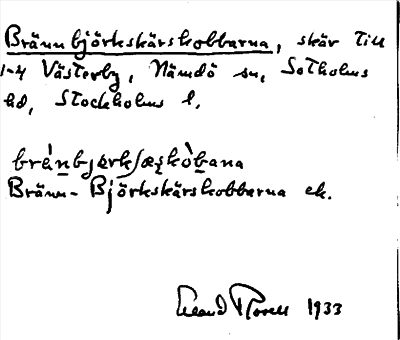 Brännbjörkskärskobbarna, skär till
1-4 Västerby, Nämdö sn, Sotholms
hd, Stockholms l.
brȁnbjærkʃæʂkòbana
Bränn-Björkskärskobbarna ek.
1933